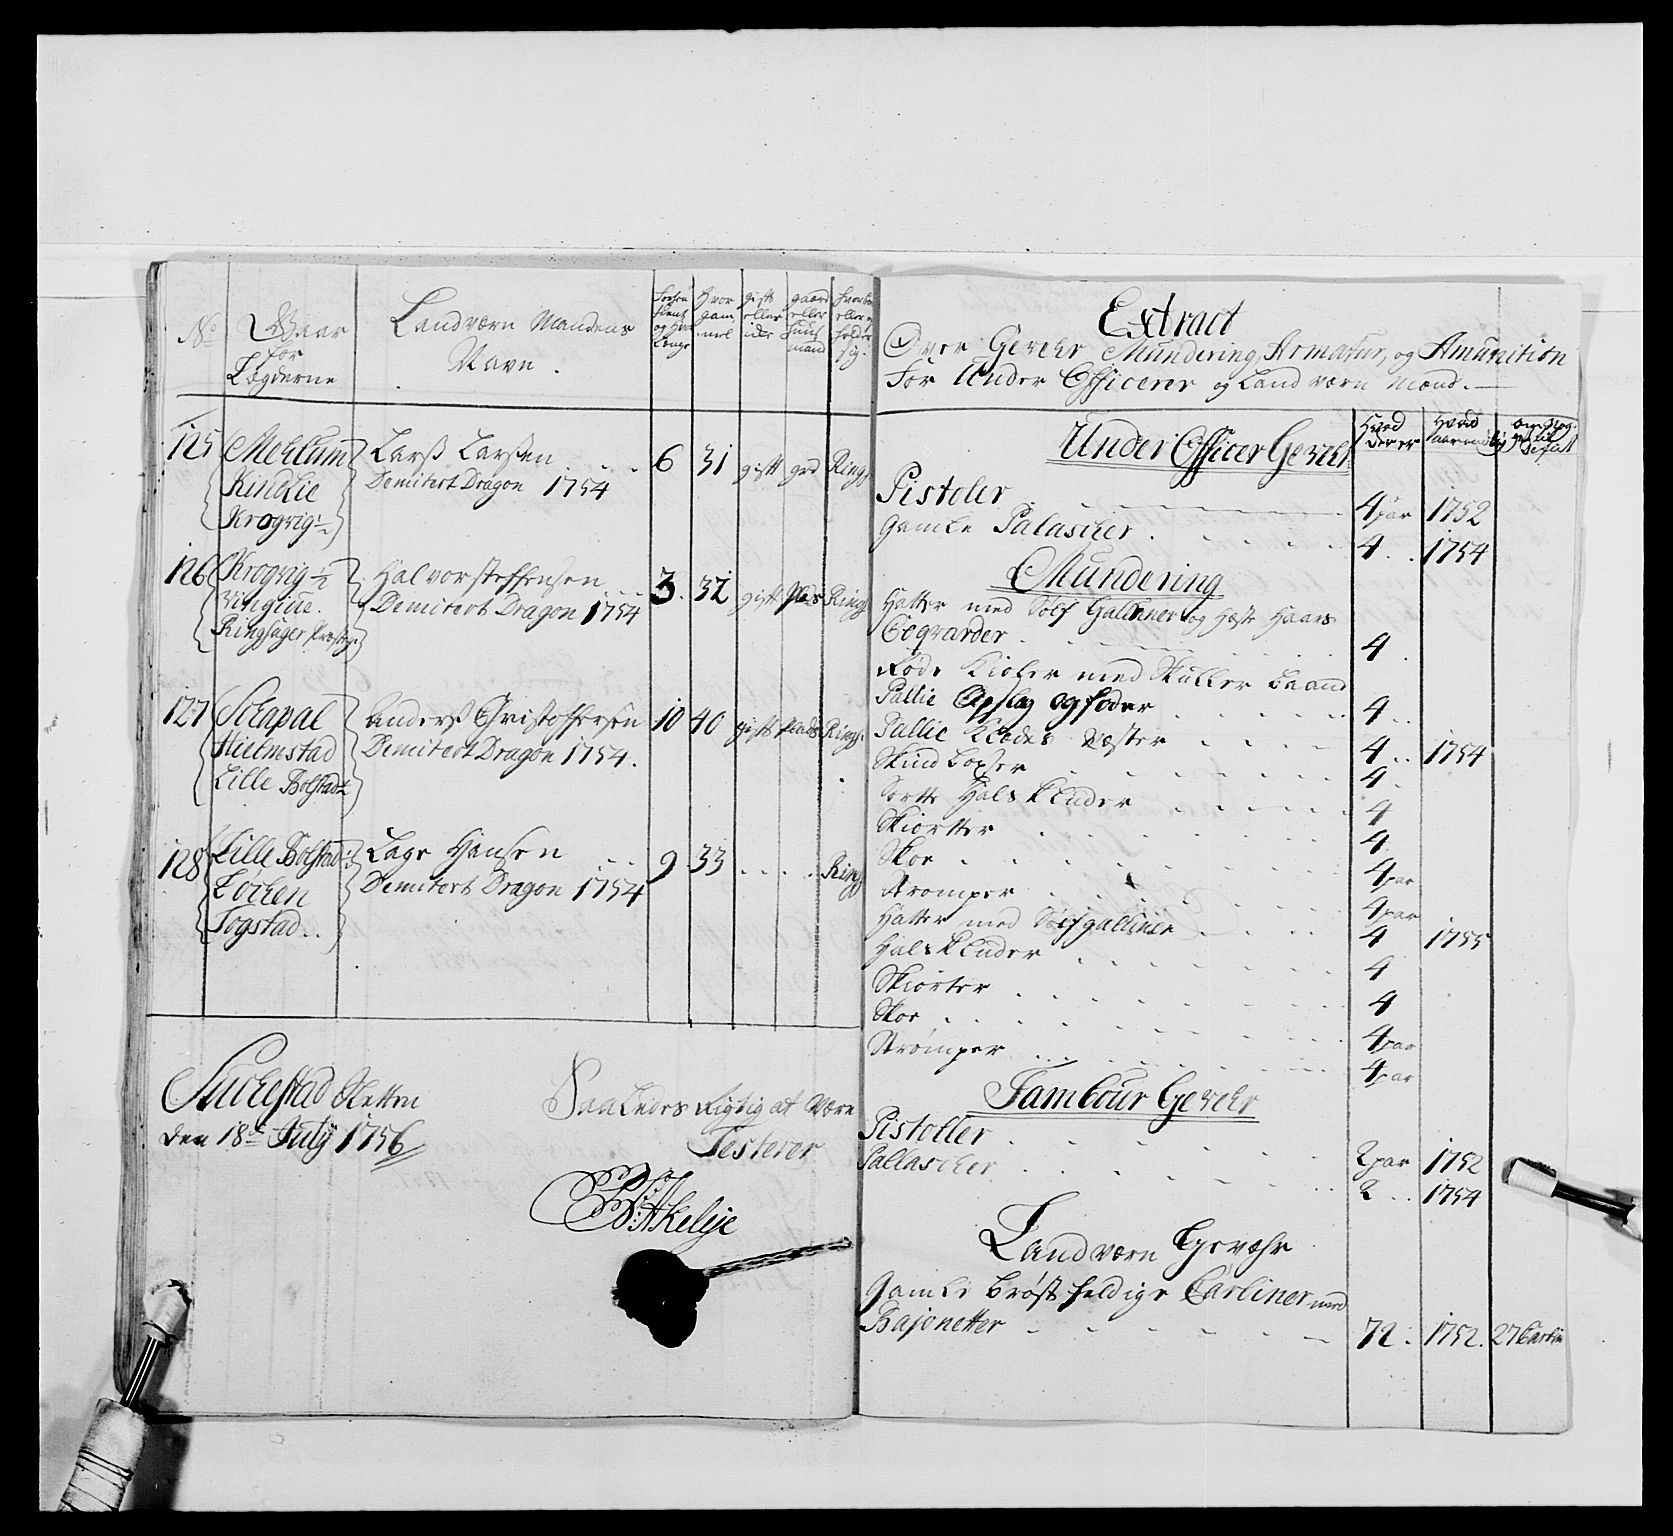 No
Gaar
for
Lægderne
Landværn Mandens
Navn.
Hvor
gam
mel
gift
eller
ide
gaard
eller
huus
mand
125
Mehlum
Kindlie
Krogvig ½
Larss Larssen
Demitert Dragon 1754
6
31
gift
grd
Rings
126
Krogvig ½
Ringsager Præstg:
Halvor Steffensen
Demitert Dragon 1754
3.
32
gift
plds
Rings
127
Sclapal
Hielmstad
Lille Bolstad ½
Anders Christoffersen
Demitert Dragon 1754.
10
40
gift
plads
Rings.
128
Lille Bolstad
Løcken
Togstad..
Lage Hansen
Demitert Dragon 1754
9
33
Rings
Sletten
den 18de July 1756
Saaledes Rigtig at Være
Testerer
Akeleye
Extract
Over Gevehr Mundering, Armatur, og Amunition
for Under Officerer og Land værn Mænd.
Hvad
der er
Hvad
Under Officer Gevehr
Pistoler
4 par
1752
Gamle Palascher
4
1754
Mundering
Hatter med Sølf Galliuner og Hæste Haars
Coqvarder
4
Røde Kioler med Skulter baand
Pallie Opslag og foder
4
Pallie Klædes Væster
4
1754
Skind boxser
4
Sorte Hals Kluder
4
Skiortter
4
Skoe
4 par
Strømper
4 par
Hatter med Sølf galliuner
4
1755
Hals Kluder
4
Skiorter
4
Skoe
4 par
Strømper
4 par
Tambour Gevehr
Pistoller
2 par
1752
Pallascher
2
1754
Land værn Gevæhr
Gamle brøstfeldige Carbiner med
Bajonetter
72.
1752.
27 Carbin